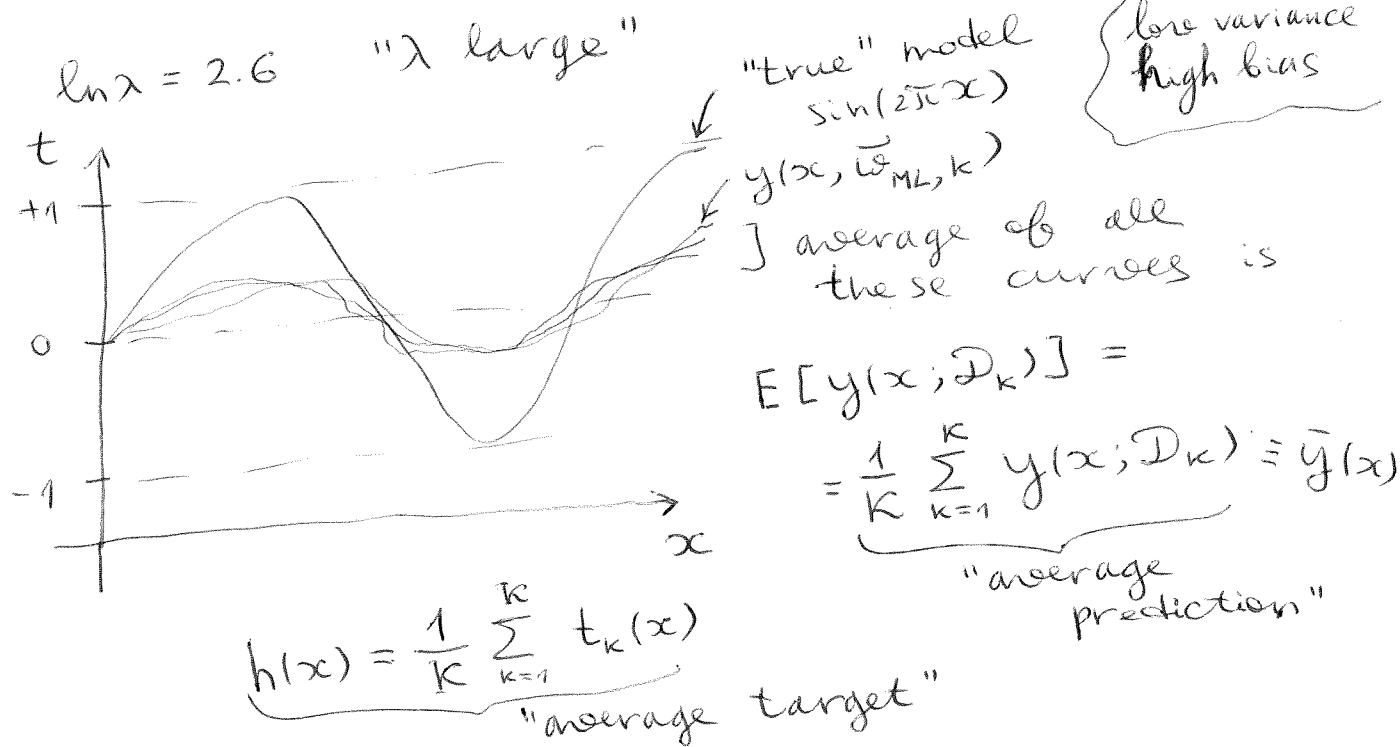 ln λ = 2.6 "λ large"
"true" model
sin(2πx)
low variance
high bias
t
+1
0
-1
x
y(x, w̃_ML,k)
] average of all
these curves is
E[y(x; D_k)] =
= 1/K Σ_{k=1}^{K} y(x; D_k) ≡ ȳ(x)
"average
prediction"
h(x) = 1/K Σ_{k=1}^{K} t_k(x)
"average target"